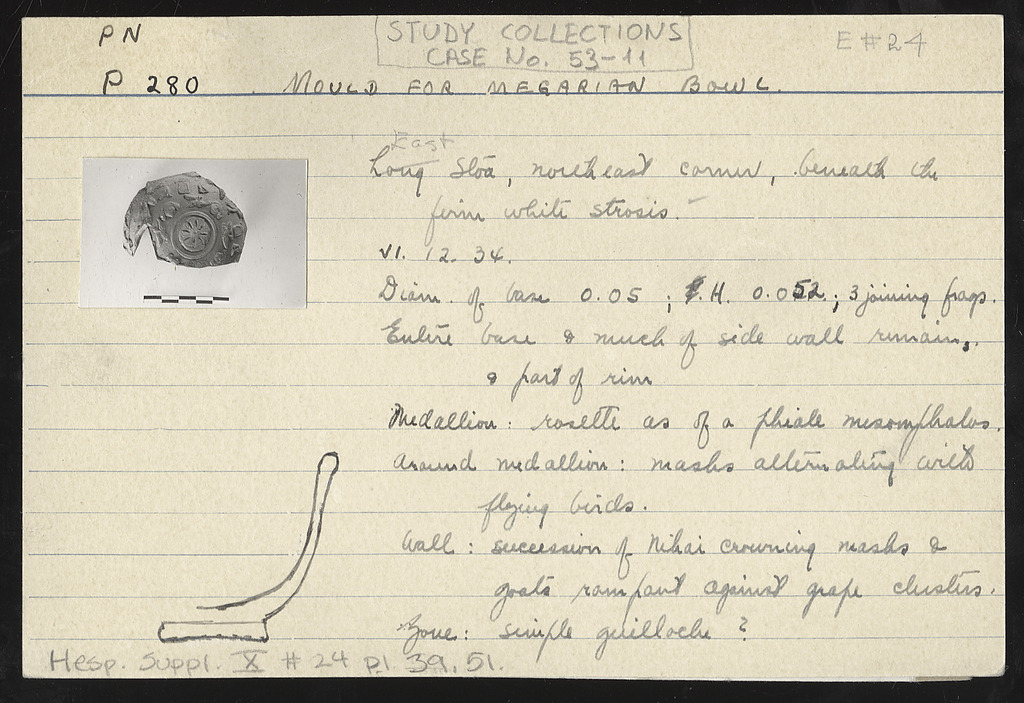 PN
STUDY COLLECTIONS
CASE No. 53-11
E #24
P 280 . MOULD FOR MEGARIAN BOWL.
East
Long Stoa, northeast corner, beneath the
firm white strosis.
VI. 12. 34.
Diam. of base 0.05 ; P.H. 0.052 ; 3 joining frags.
Entire base & much of side wall remains,
& part of rim
Medallion : rosette as of a phiale mesomphalos.
Around medallion : masks alternating with
flying birds.
Wall : succession of Nikai crowning masks &
goats rampant against grape clusters.
Zone : simple guilloche ?
Hesp. Suppl. X # 24 pl. 39, 51.